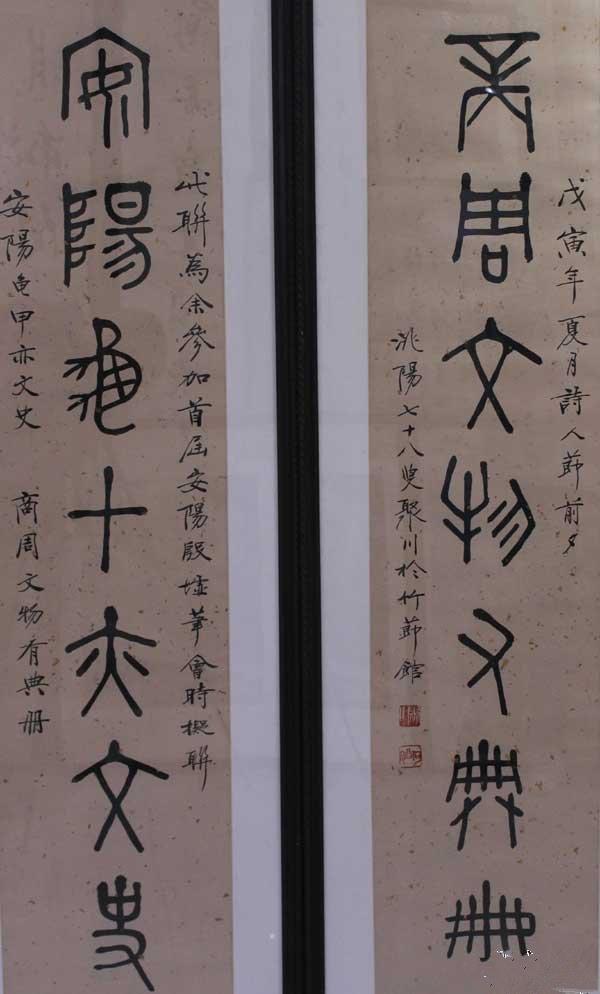 戊寅年夏月詩人節前夕
商周文物有典冊
洮陽七十八叟聚川於竹節館
此聯為余參加首屆安陽殷墟筆會時擬聯
安陽龜甲亦文史
安陽龜甲亦文史 商周文物有典冊